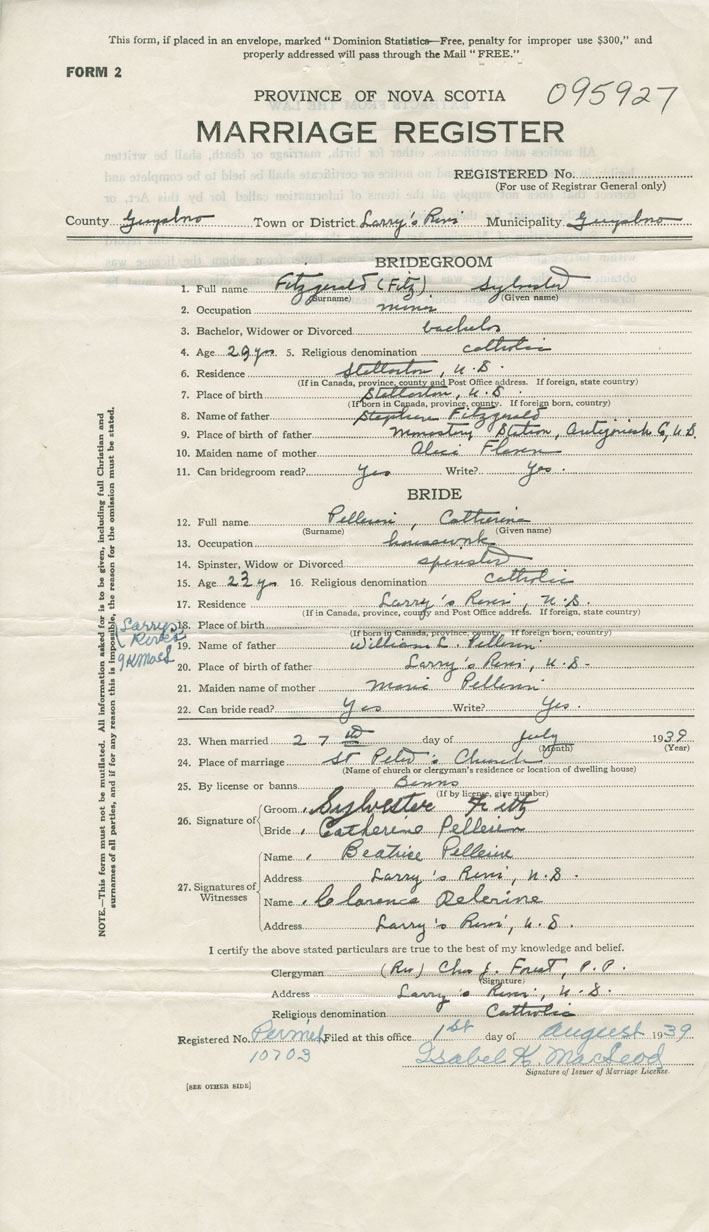 This form, if placed in an envelope, marked "Dominion Statistics—Free, penalty for improper use $300," and
properly addressed will pass through the Mail "FREE."
FORM 2
PROVINCE OF NOVA SCOTIA 095927
MARRIAGE REGISTER
REGISTERED No.
(For use of Registrar General only)
County Guysboro Town or District Larry's River Municipality Guysboro
BRIDEGROOM
1. Full name Fitzgerald (Fitz) Sylvester
(Surname) (Given name)
2. Occupation miner
3. Bachelor, Widower or Divorced bachelor
4. Age 29 yrs. 5. Religious denomination catholic
6. Residence Stellarton, N.S.
(If in Canada, province, county and Post Office address. If foreign, state country)
7. Place of birth Stellarton, N.S.
(If born in Canada, province, county. If foreign born, country)
8. Name of father Stephen Fitzgerald
9. Place of birth of father Monastery Station, Antigonish Co, N.S.
10. Maiden name of mother Alice
11. Can bridegroom read? Yes Write? Yes.
BRIDE
12. Full name Pellerin, Catherine
(Surname) (Given name)
13. Occupation housework
14. Spinster, Widow or Divorced spinster
15. Age 23 yrs 16. Religious denomination catholic
17. Residence Larry's River, N.S.
(If in Canada, province, county and Post Office address. If foreign, state country)
18. Place of birth
Larry's
River
IKMacL
(If born in Canada, province, county. If foreign born, country)
19. Name of father William L. Pellerin
20. Place of birth of father Larry's River, N.S.
21. Maiden name of mother Marie Pellerin
22. Can bride read? Yes Write? Yes.
23. When married 27th day of July 1939
(Month) (Year)
24. Place of marriage St Peter's Church
(Name of church or clergyman's residence or location of dwelling house)
25. By license or banns Banns
(If by license, give number)
26. Signature of Groom Sylvester Fitz
Bride Catherine Pellerin
27. Signatures of Witnesses
Name Beatrice Pellerine
Address Larry's River, N.S.
Name Clarence Pelerine
Address Larry's River, N.S.
I certify the above stated particulars are true to the best of my knowledge and belief.
Clergyman (Rev) Chas J. Forest, P.P.
(Signature)
Address Larry's River, N.S.
Religious denomination Catholic
Registered No. Permit 10703 Filed at this office 1st day of August 1939
Isabel K. MacLeod
Signature of Issuer of Marriage License.
[SEE OTHER SIDE]
NOTE.—This form must not be mutilated. All information asked for is to be given, including full Christian and
surnames of all parties, and if for any reason this is impossible, the reason for the omission must be stated.